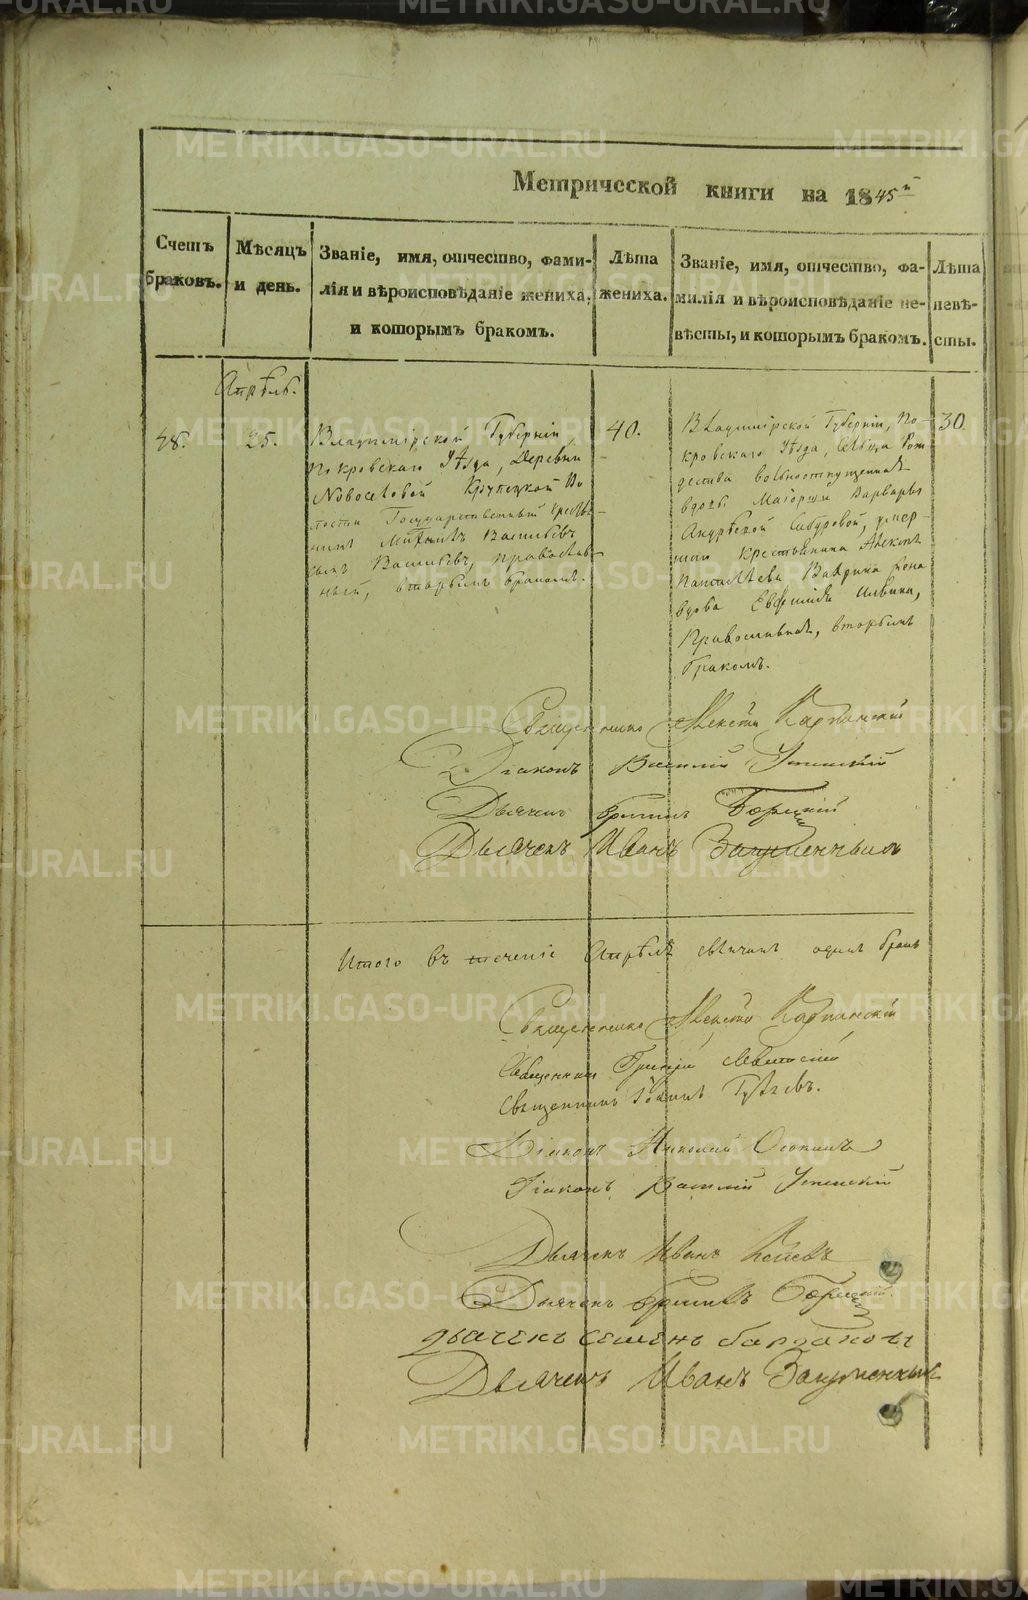 Метрической книги на 1845й
Счетъ браковъ.
Мѣсяцъ и день.
Званіе, имя, отчество, фами-
лія и вѣроисповѣданіе жениха,
и которымъ бракомъ.
Лѣта
жениха.
Званіе, имя, отчество, фа-
милія и вѣроисповѣданіе не-
вѣсты, и которымъ бракомъ.
Лѣта
невѣ-
сты.
Апрѣль.
48.
25.
Владимірской Губерніи,
Покровскаго Уѣзда, Деревни
Новоселовой Во-
лости Государственный крестья-
нинъ Васильевъ
сынъ Васильевъ, православ-
ный, вторымъ бракомъ.
40.
Владимірской Губерніи, По-
кровскаго Уѣзда, Сельца Рож-
дества вольноотпущенная
вдовы Маіорши Варвары
Андреевой Сабуровой, умер-
шаго крестьянина Алексѣя
Пантелѣева жена
вдова Евфимія
Православная, вторымъ
бракомъ.
30.
Священникъ Алексѣй Карпинскій
Діаконъ Василій Успенскій
Дьячекъ
Дьячекъ Иванъ
Итого въ теченіе Апрѣля свѣнчанъ одинъ бракъ
Священникъ Алексѣй Карпинскій
Священникъ Григорій
Священникъ Іоаннъ
Діаконъ Николай Осокинъ
Діаконъ Василій Успенскій
Дьячекъ Иванъ
Дьячекъ
дьячекъ Семенъ
Дьячекъ Иванъ
METRIKI.GASO-URAL.RU